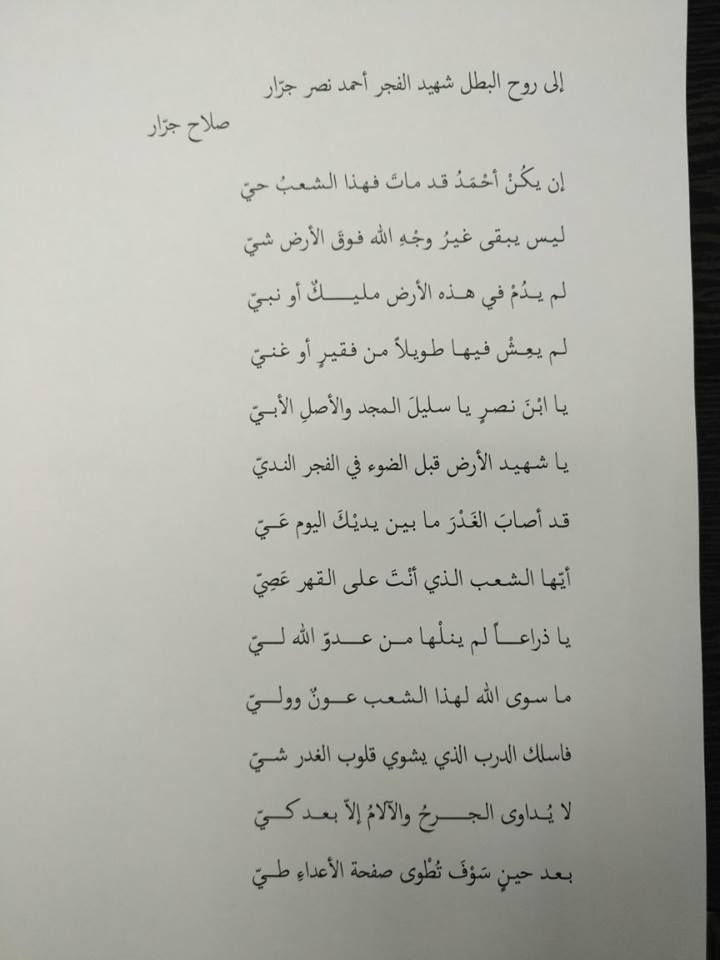 إلى روح البطل شهيد الفجر أحمد نصر جرّار
صلاح جرّار
إن يكُنْ أحْمَدُ قد ماتَ فهذا الشعبُ حيّ
ليس يبقى غيرُ وجْهِ الله فوقَ الأرض شيّ
لم يدُمْ في هذه الأرض مليكٌ أو نبيّ
لم يعِشْ فيها طويلاً من فقيرٍ أو غنيّ
يا ابْنَ نصرٍ يا سليلَ المجد والأصلِ الأبيّ
يا شهيد الأرض قبل الضوء في الفجر النديّ
قد أصابَ الغَدْرَ ما بين يديْكَ اليوم عَيّ
أيّها الشعب الذي أنْتَ على القهر عَصِيّ
يا ذراعاً لم ينلْها من عدوّ الله ليّ
ما سوى الله لهذا الشعب عونٌ ووليّ
فاسلك الدرب الذي يشوي قلوب الغدر شيّ
لا يُداوى الجرحُ والآلامُ إلاّ بعد كيّ
بعد حينٍ سَوْفَ تُطْوى صفحة الأعداءِ طيّ